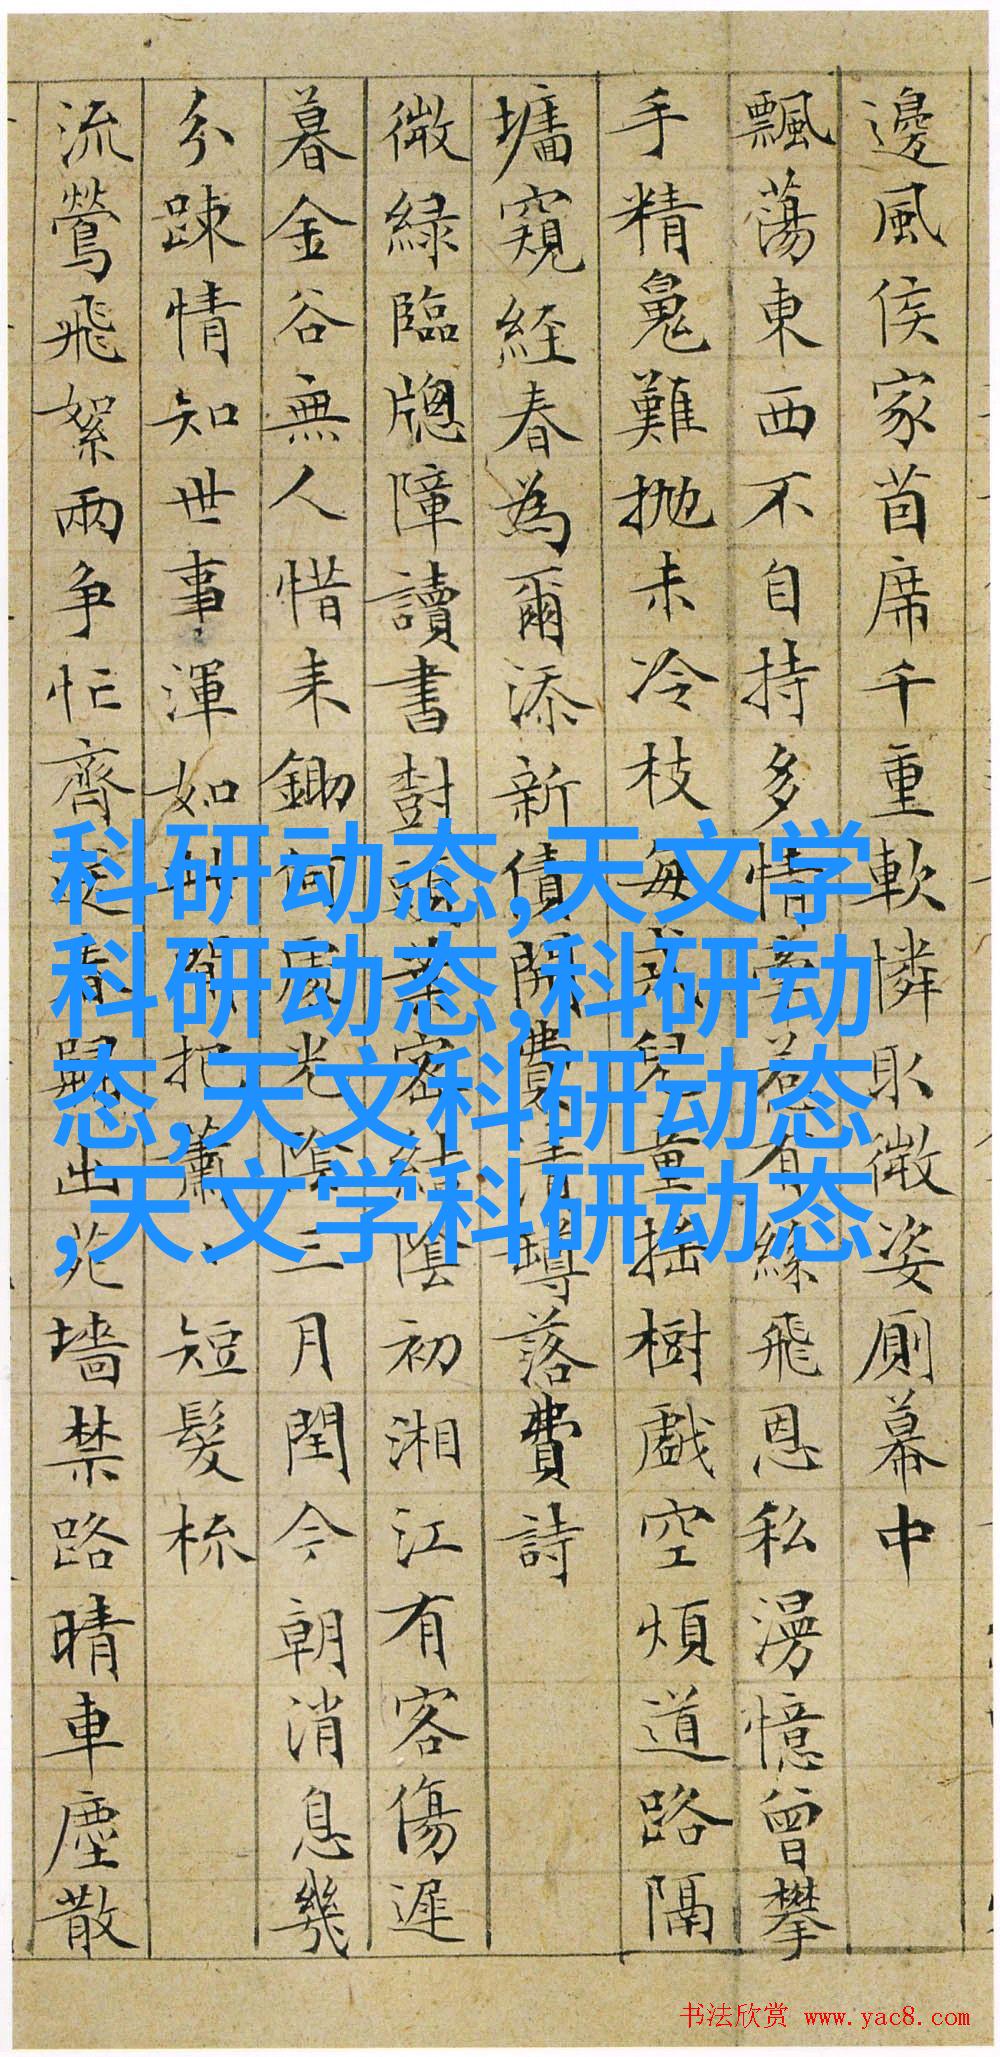 邊風侯家茵席千重軟憐取微姿厠幕中
飄蕩東西不自持多情若有絲飛恩私漫憶曾攀
手精魂難抛未冷枝每兒童搖樹戲空煩道路隔
墻窺經春為爾添新債開費清樽落費詩
微綠臨牕障讀書葉密結陰初湘江有客傷遲
暮金谷無人惜來鋤光陰三月閏今朝消息幾
分疎情知世事渾如把蕭短髮梳
流鶯飛絮兩爭忙齊春出苑墻禁路晴車塵散
科研动态,天文学
科研动态,科研动
态,天文科研动态
,天文学科研动态
书法欣赏 www.yac8.com